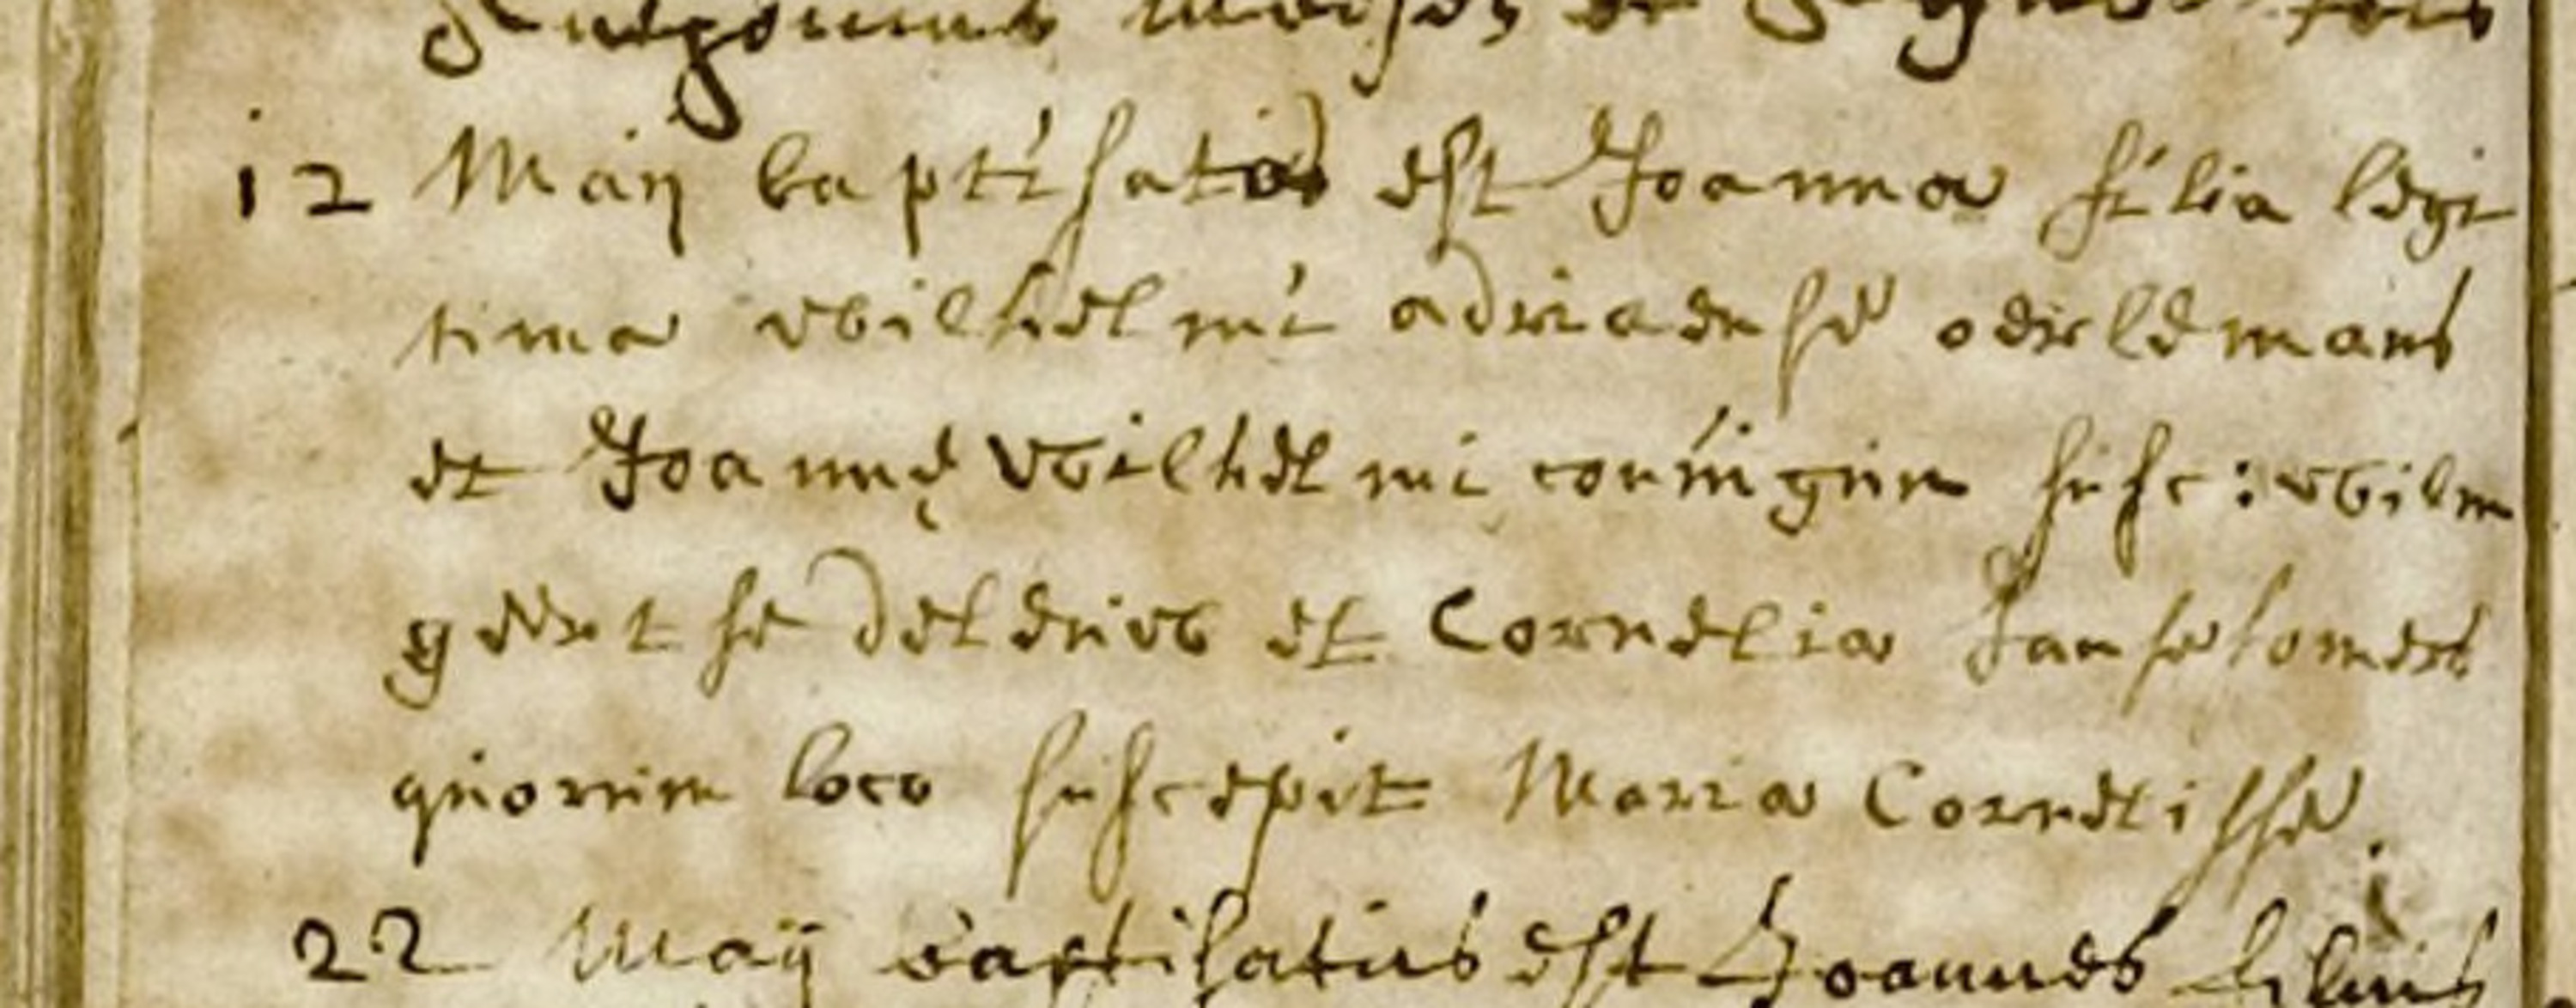 12 Maij baptisata est Joanna filia legi
tima wilhelmi adriaense oerlemans
et Joannę Wilhelmi coniugum susc: wilm
geertse deleuw et Cornelia Janse somers
quorum loco suscepit Maria Cornelisse.
22 Maij baptisatus est Joannes filius